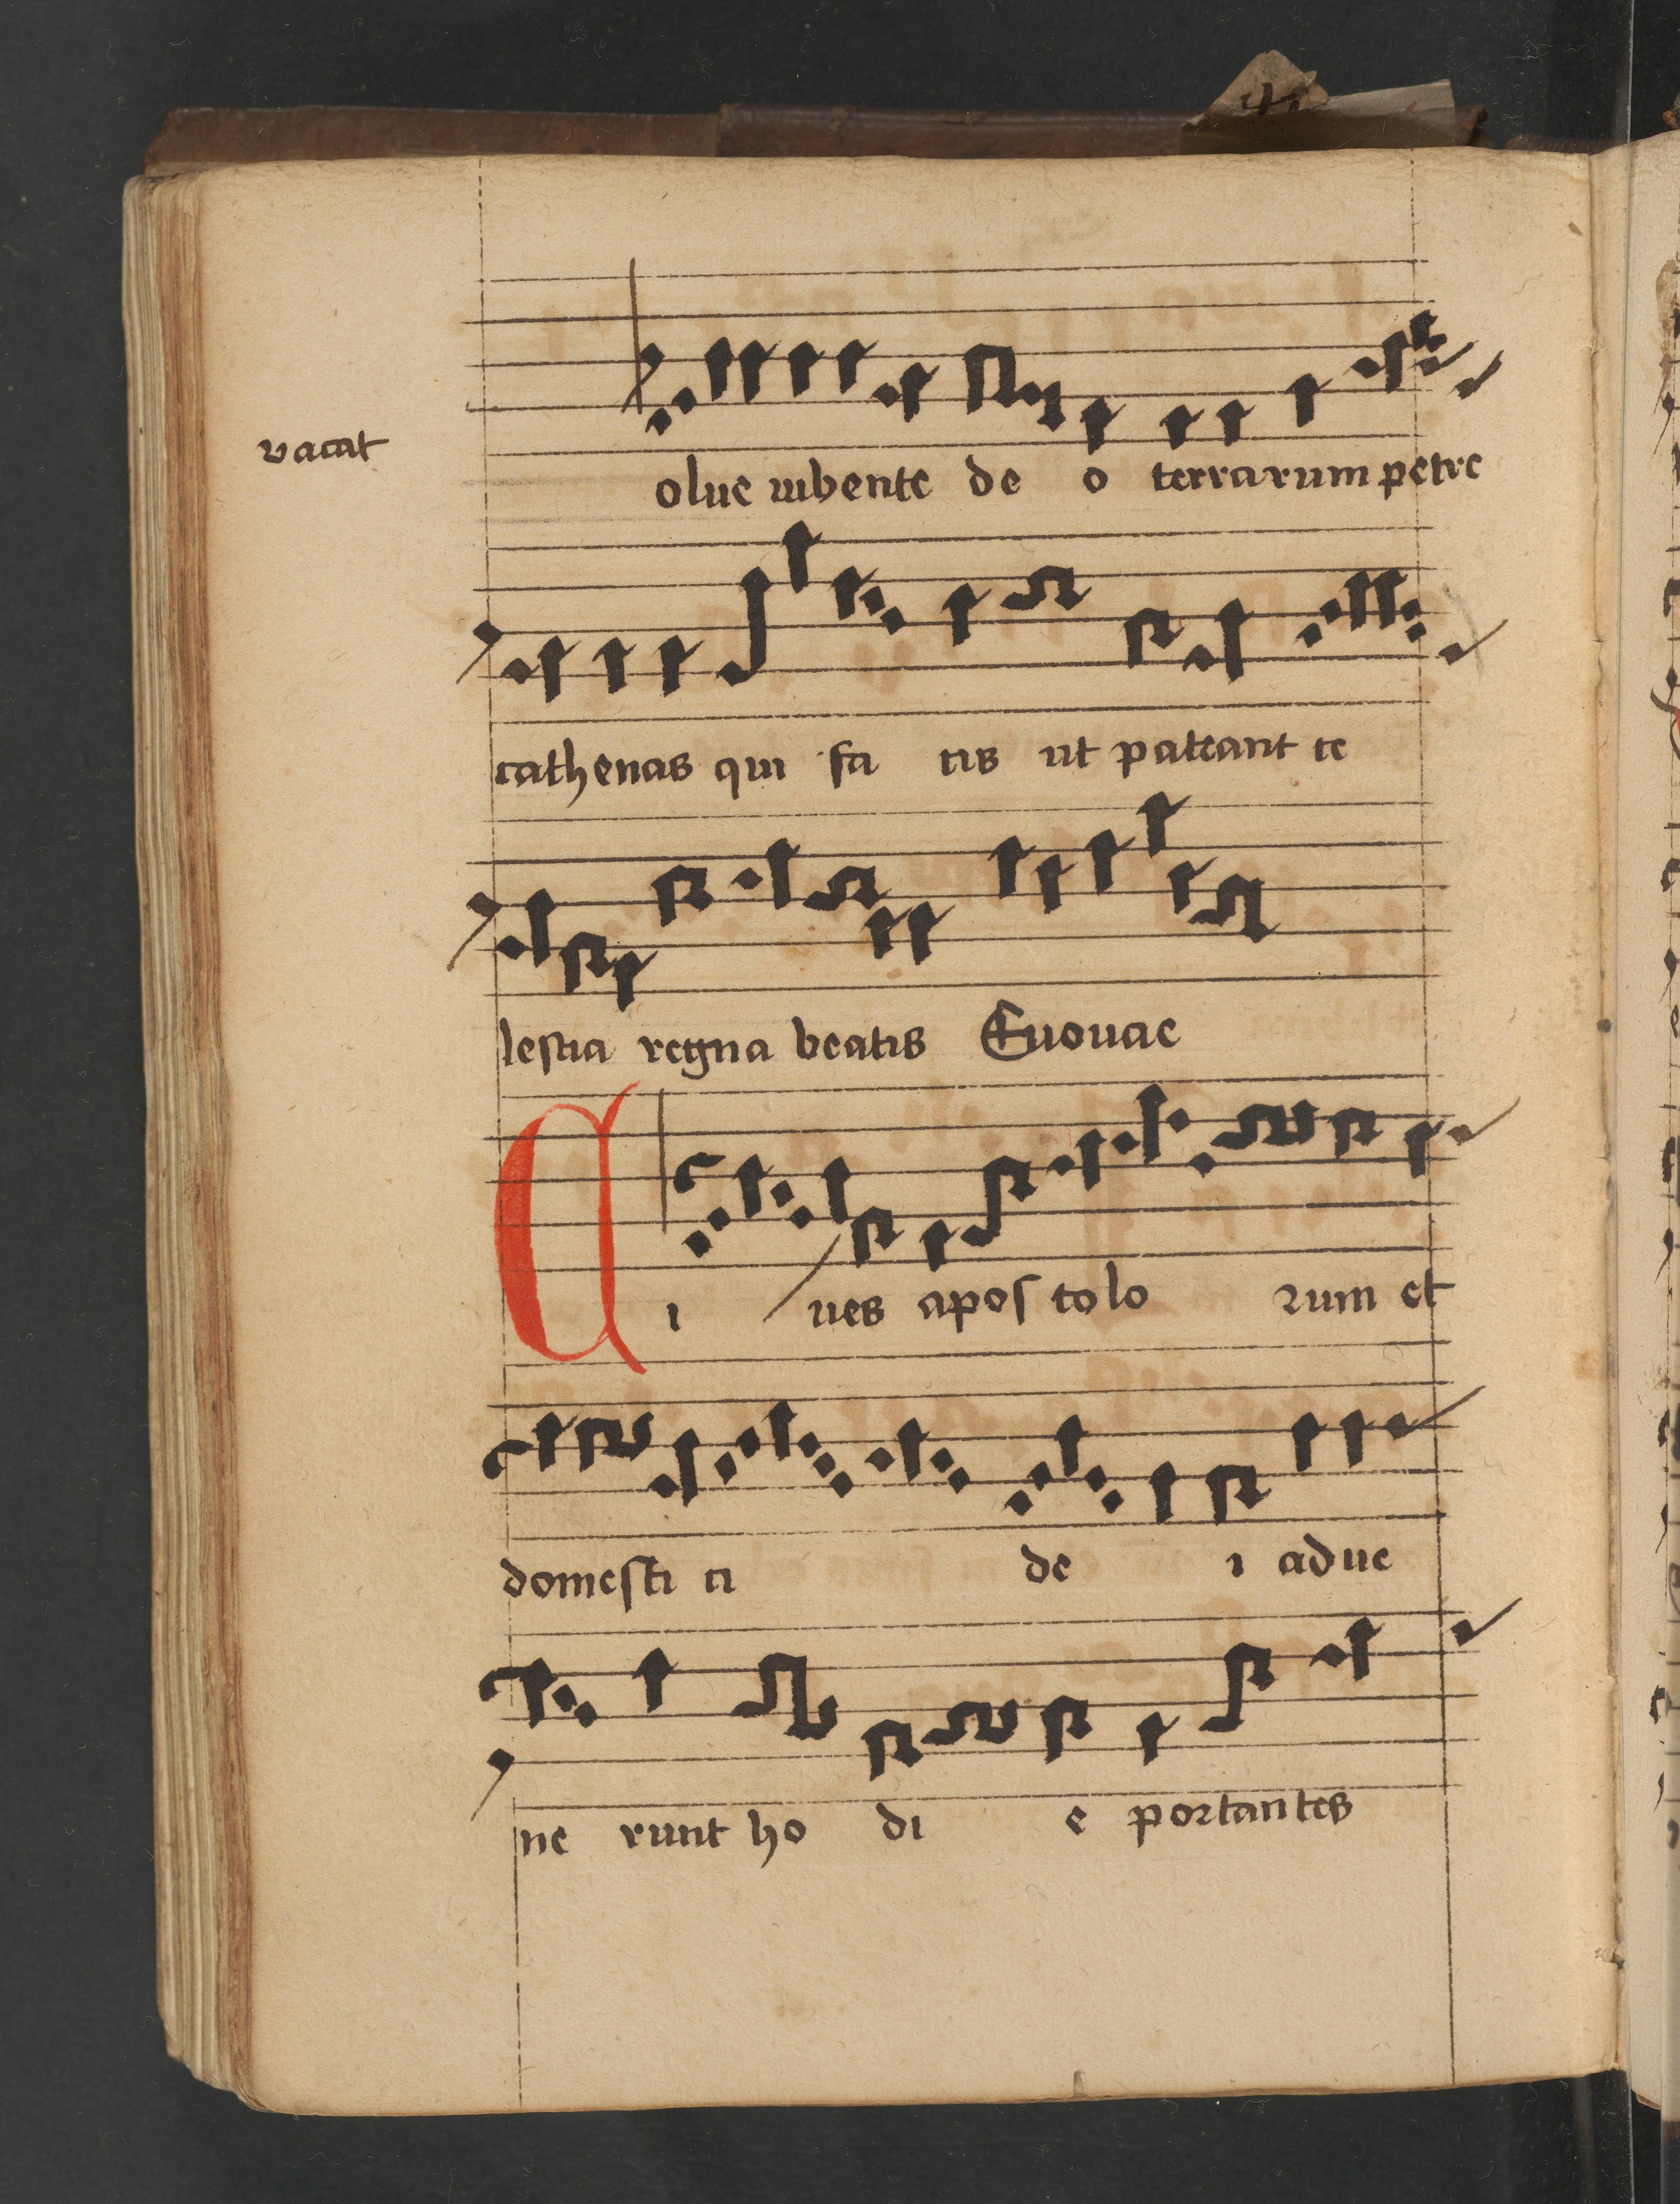 vacat
olue iubente de o terrarum petre
cathenas qui fa cis ut pateant ce
lestia regna beatis Euouae
C i ues apos tolo rum et
domesti ci de i adue
ne runt ho di e portantes